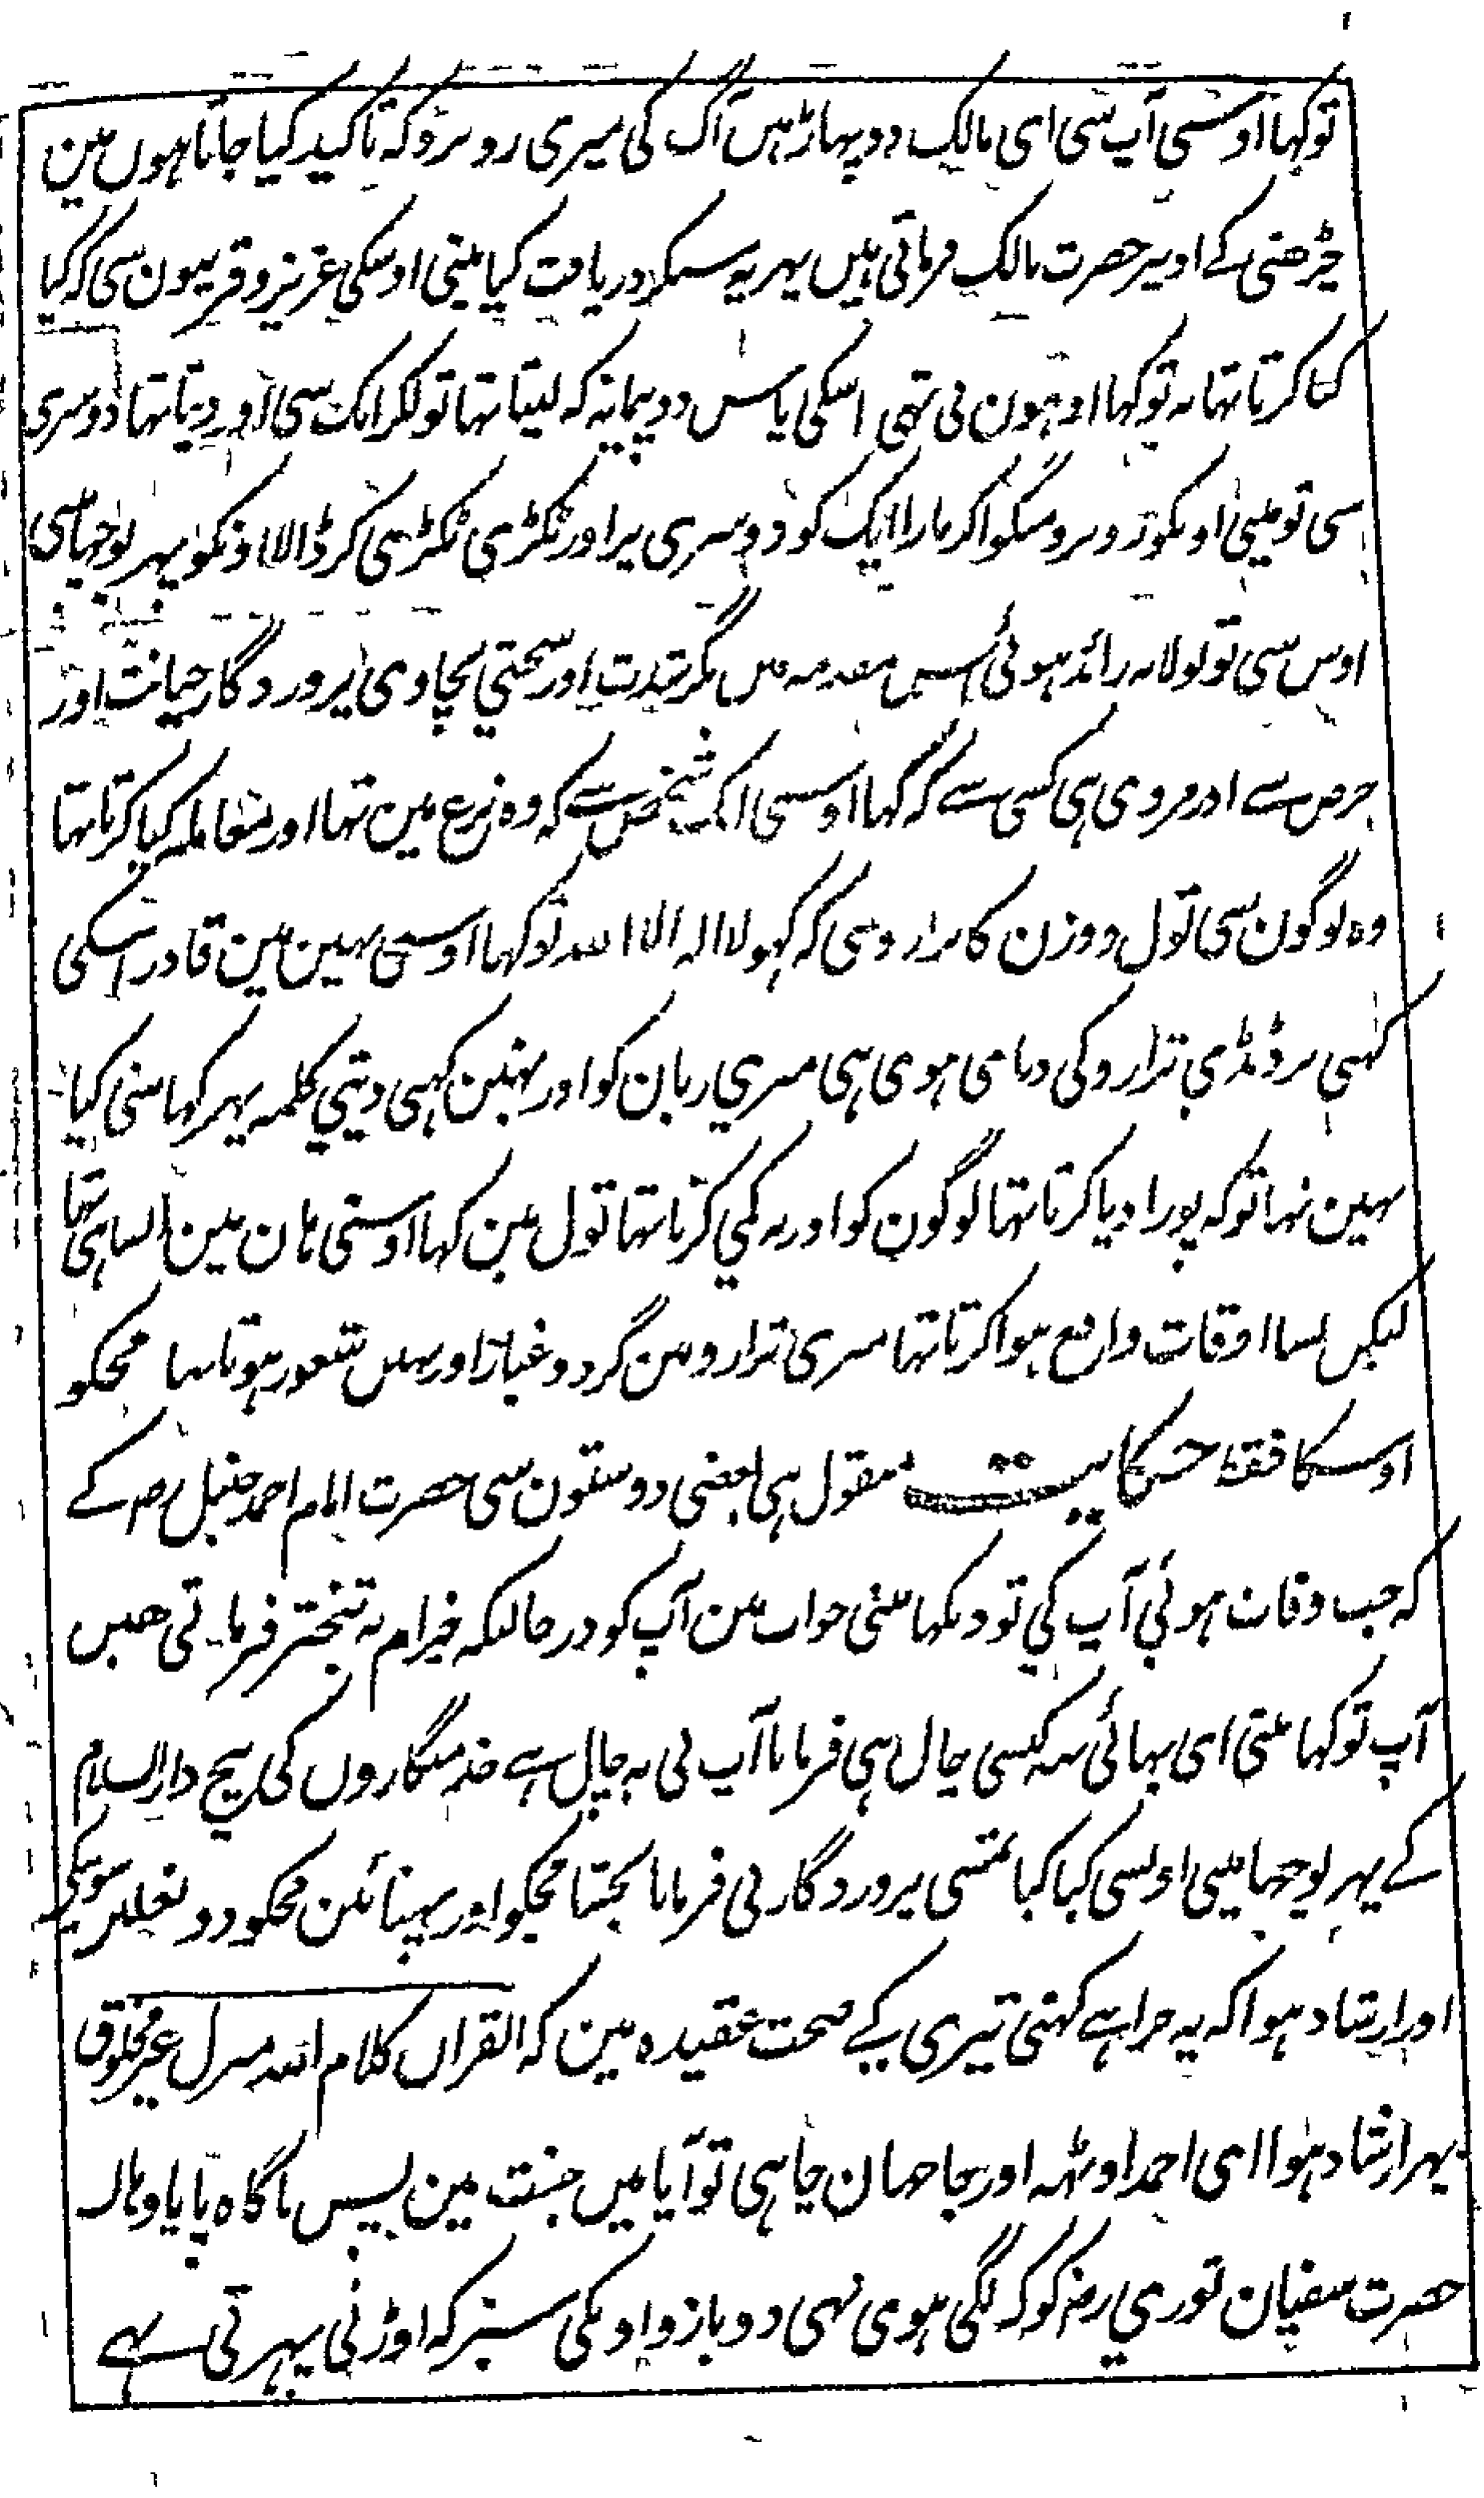 تو کہا اوسنی آپ سی ای مالک دو پہاڑ ہیں آگ کی میری روبرو کہ تاکید کیا جاتا ہوں مین
چڑھنی کے اوپر حضرت مالک فرماتی ہیں پہر یہ سنکر دریافت کیا مینی اوسکی عزیز و قریبون سی کہ کیا
کیا کرتا تہا یہ تو کہا اونہون نی تہی اسکی پاس دو پیمانہ کہ لیتا تہا تو لکر ایک سی اور دیتا تہا دوسری
سی تو مینی اونکو روبرو منگوا کر مارا ایک کو دوسری پر اور ٹکڑی ٹکڑی کر ڈالا اونکو پہر پوچہا مینی
اوس سی تو بولا نہ زائد ہوئی اس مقدمہ میں مگر شدت اور سختی بچاوی پروردگار خیانت اور
حرص سے اور مروی ہی کسی سے کہ کہا اوسنی ایک شخص سے کہ وہ نزع مین تہا اور معاملہ کیا کرتا تہا
وہ لوگون سی تول ووزن کا برازوی کہ کہو لا الہ الا اللہ تو کہا اوسنی نہین مین قادر اسکی
کہنی پر ڈنڈی ترازو کی دبای ہوی ہی میری زبان کو اور نہین کہنی دیتی کلمہ پہر کہا مینی کیا
نہین تہا تو کہ پورا دیا کرتا تہا لوگون کو اور نہ کمی کرتا تہا تول مین کہا اوسنی ہان مین ایسا ہی تہا
لیکن بسا اوقات واقع ہوا کرتا تہا میری ترازو مین گرد و غبار اور نہیں شعور ہوتا تہا مجکو
اوسکا فقط حکایت منقول ہی بعضی دوستون سی حضرت امام احمد حنبل رح کے
کہ جب وفات ہوئی آپ کی تو دیکہا مینی خواب مین آپ کو در حالیکہ خرام بہ تبختر فرماتی ھیں
آپ تو کہا مینی ای بہائی یہ کیسی چال ہی فرمایا آپ نی یہ چال ہے خدمتگاروں کی بیچ دار السلام
کے پہر پوچہا مینی اونسی کیا کیا تمسی پروردگار نی فرمایا بخشا مجکو اور پہنائین مجکو دو نعلین سونیکی
اور ارشاد ہوا کہ یہ جزا ہے کہنی تیری کے صحت عقیدہ مین کہ القران کلام اللہ منزل غیر مخلوق
پہر ارشاد ہوا ای احمد اوٹہہ اور جا جہان چاہی تو آیا میں جنت مین پس ناگاہ پایا وہاں
حضرت سفیان ثوری رض کو کہ لگی ہوی تہی دو بازو اونکی سبز کہ اوڑتی پہرتی ہے